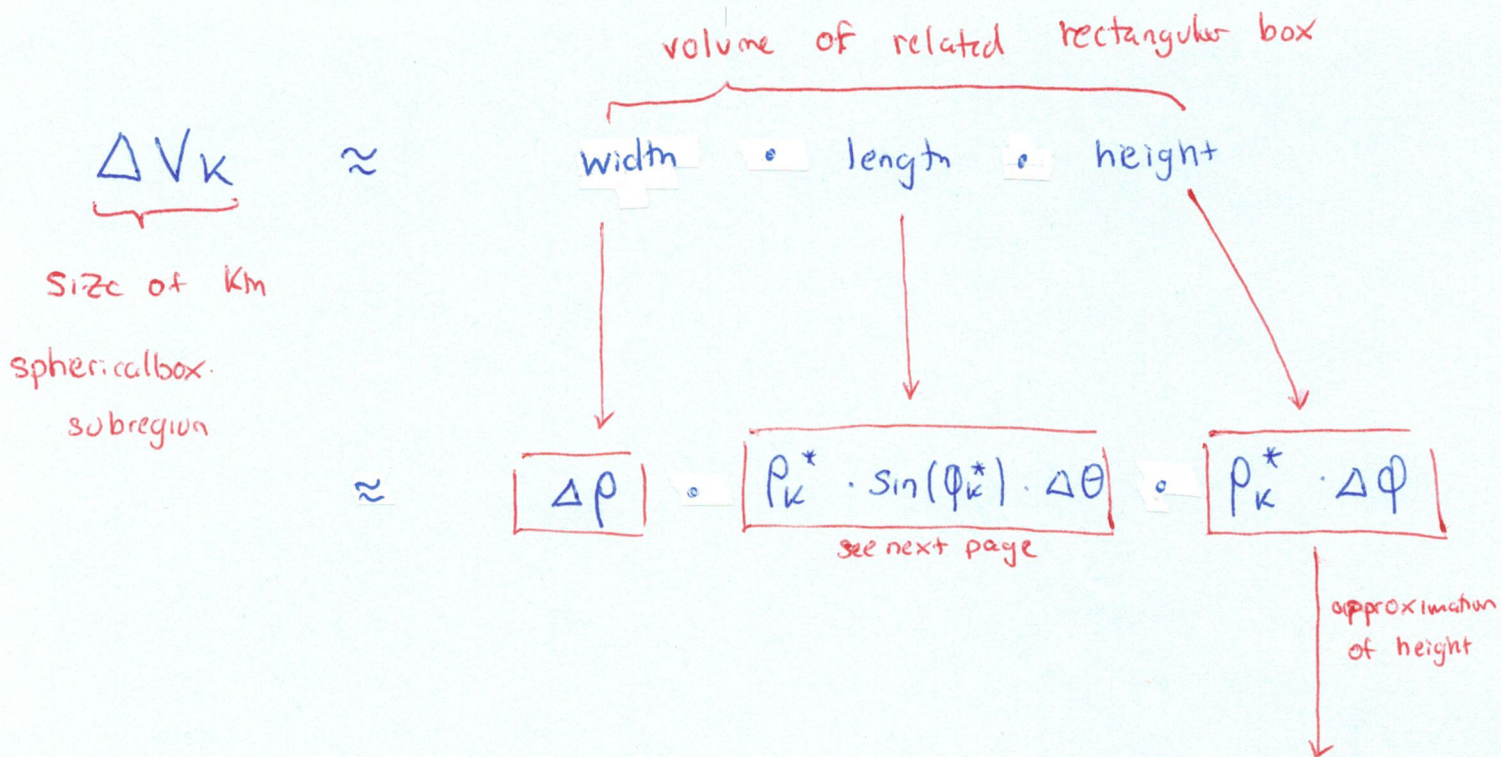 volume of related rectangular box
ΔVK ≈ width · length · height
size of Kth
spherical box
subregion
≈ Δρ · ρK* · sin(φK*) · Δθ · ρK* · Δφ
see next page
approximation
of height